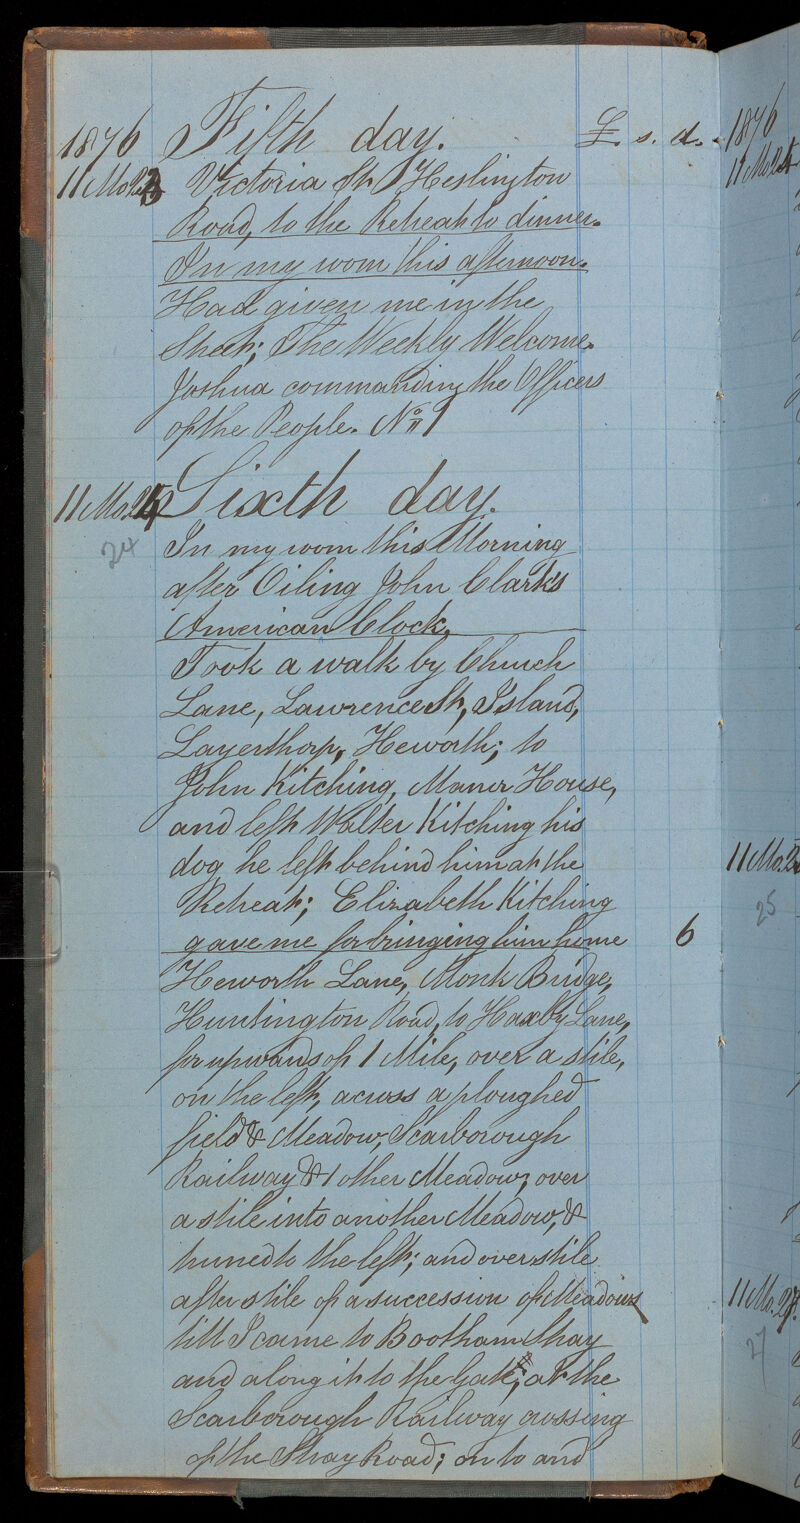 1876 Fifth day. £. s. d.
11 Mo. 23 Victoria St, Heslington
Road, to the Retreat to dinner.
In my room this afternoon.
Had given me in the
Street; The Weekly Welcome.
Joshua commanding the Officers
of the People. No 1
11 Mo. 24 Sixth day.
24
In my room this Morning
after Oiling John Clark's
American Clock,
Took a walk by Church
Lane, Lawrence St, Island,
Layerthorp, Heworth; to
John Kitching, Manor House,
and left Walter Kitching his
dog he left behind him at the
Retreat; Elizabeth Kitching
gave me for bringing him home 6
Heworth Lane, Monk Bridge,
Huntington Road, to Haxby Lane,
for upwards of 1 Mile, over a stile,
on the left, across a ploughed
field & Meadow, Scarborough
Railway & 1 other Meadow, over
a stile into another Meadow, &
turned to the left; and over stile
after stile of a succession of Meadows
till I came to Bootham Stray
and along it to the Gate; at the
Scarborough Railway crossing
of the Stray Road; on to and
1876
11 Mo.
11 Mo. 2
25
11 Mo. 27
27